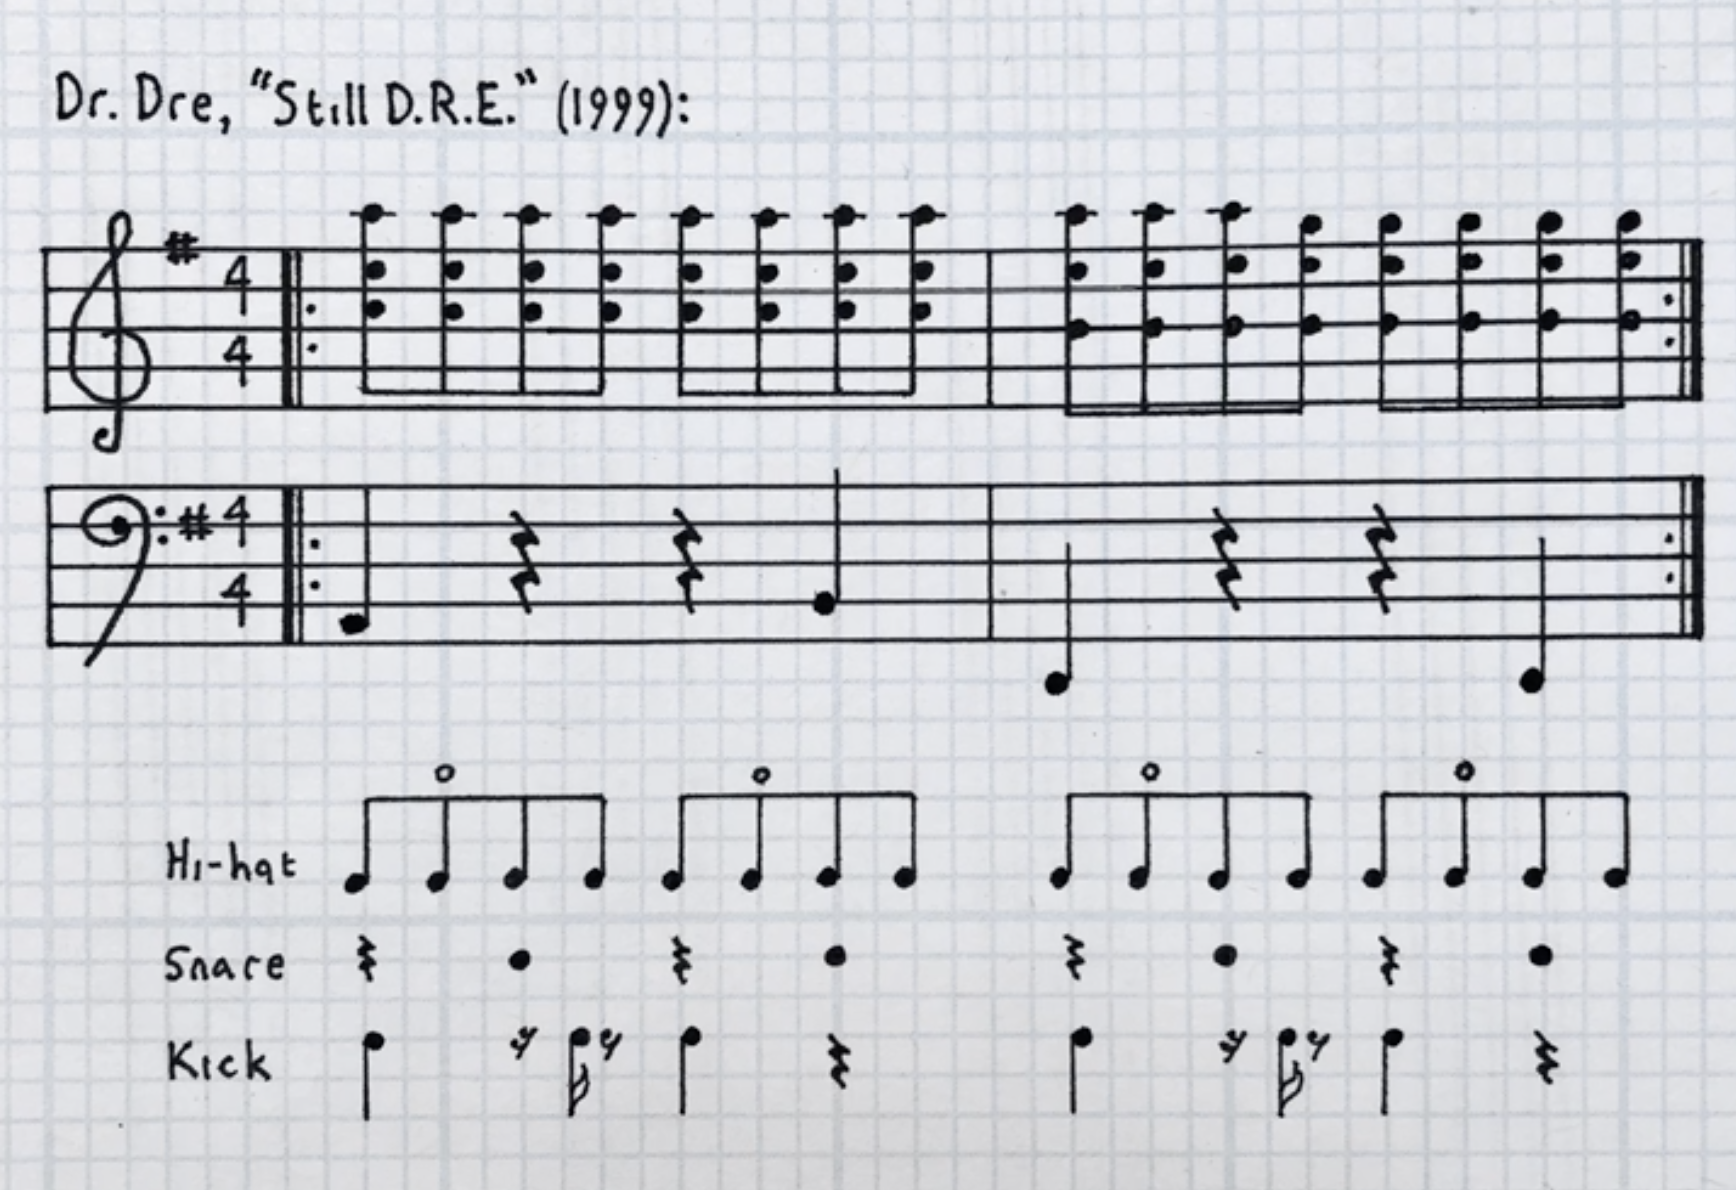 Dr. Dre, "Still D.R.E." (1999):
4
4
4
4
Hi-hat
Snare
Kick